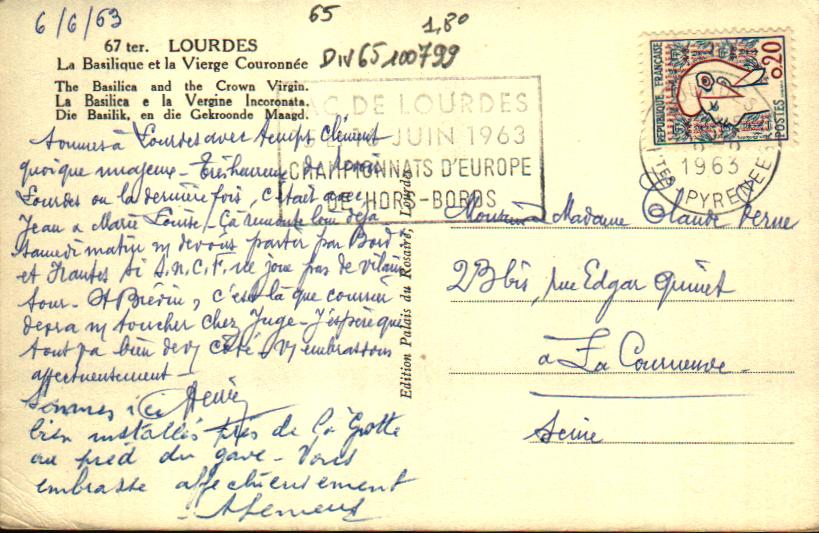 6/6/63
65
1,80
DIV65100799
67 ter. LOURDES
La Basilique et la Vierge Couronnée
The Basilica and the Crown Virgin.
La Basilica e la Vergine Incoronata.
Die Basilik, en die Gekroonde Maagd.
LAC DE LOURDES
JUIN 1963
CHAMPIONNATS D'EUROPE
DE HORS-BORDS
REPUBLIQUE FRANÇAISE
0,20
POSTES
1963
PYRENEES
Sommes à Lourdes avec temps clément
quoique nuageux - Très heureux de revoir
Lourdes ou la dernière fois, c'était avec
Jean & Marie Louise - Ça remonte loin déjà
Samedi matin ns devons partir par Bord
et Nantes si S.N.C.F. ne joue pas de vilain
tour - St Brévin, c'est là que courrier
devra ns toucher chez Juge - J'espère que
tout va bien de vs côté - Vs embrassons
affectueusement -
Sommes ici
bien installés près de la Grotte
au pied du gave - Vous
embrasse affectueusement
Edition Palais du Rosaire, Lourdes
Monsieur Madame Claude Verne
23 bis, rue Edgar Quinet
à La Courneuve -
Seine